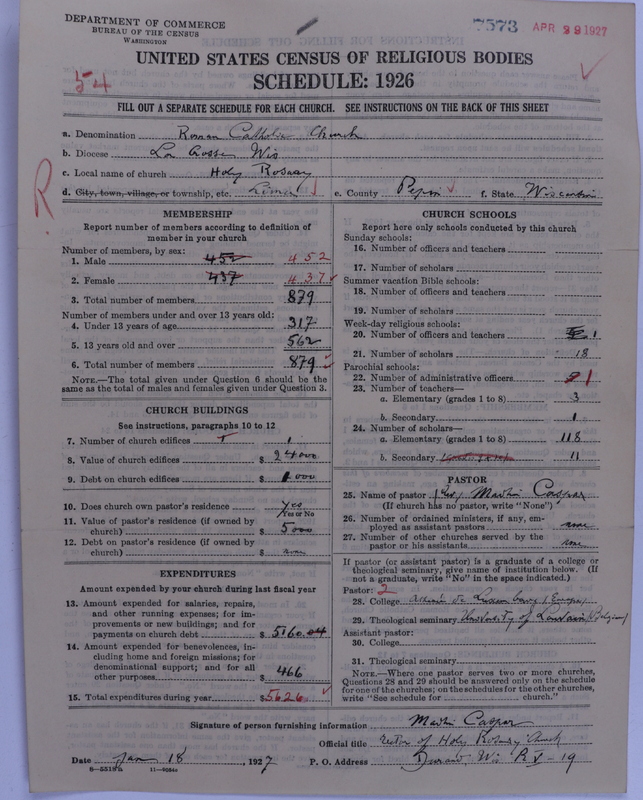 DEPARTMENT OF COMMERCE
BUREAU OF THE CENSUS
WASHINGTON
7573 APR 29 1927
UNITED STATES CENSUS OF RELIGIOUS BODIES
54
SCHEDULE: 1926
FILL OUT A SEPARATE SCHEDULE FOR EACH CHURCH. SEE INSTRUCTIONS ON THE BACK OF THIS SHEET
a. Denomination Roman Catholic Church
b. Diocese La Crosse Wis
c. Local name of church Holy Rosary
d. City, town, village, or township, etc. Lima e. County Pepin f. State Wisconsin
R
MEMBERSHIP
Report number of members according to definition of
member in your church
Number of members, by sex:
1. Male 452 452
2. Female 437 437
3. Total number of members 879
Number of members under and over 13 years old:
4. Under 13 years of age 317
5. 13 years old and over 562
6. Total number of members 879
NOTE.—The total given under Question 6 should be
same as the total of males and females given under Question 3.
CHURCH BUILDINGS
See instructions, paragraphs 10 to 12
7. Number of church edifices 1
8. Value of church edifices $ 24000
9. Debt on church edifices $ 1000
10. Does church own pastor's residence yes
Yes or No
11. Value of pastor's residence (if owned by
church) $ 5000
12. Debt on pastor's residence (if owned by
church) $ none
EXPENDITURES
Amount expended by your church during last fiscal year
13. Amount expended for salaries, repairs,
and other running expenses; for im-
provements or new buildings; and for
payments on church debt $ 5160.04
14. Amount expended for benevolences, in-
cluding home and foreign missions; for
denominational support; and for all
other purposes $ 466
15. Total expenditures during year $ 5626
CHURCH SCHOOLS
Report here only schools conducted by this church
Sunday schools:
16. Number of officers and teachers
17. Number of scholars
Summer vacation Bible schools:
18. Number of officers and teachers
19. Number of scholars
Week-day religious schools:
20. Number of officers and teachers 1
21. Number of scholars 18
Parochial schools:
22. Number of administrative officers 1
23. Number of teachers—
a. Elementary (grades 1 to 8) 3
b. Secondary 1
24. Number of scholars—
a. Elementary (grades 1 to 8) 118
b. Secondary 11
PASTOR
25. Name of pastor (Rev) Martin Caspar
(If church has no pastor, write "None")
26. Number of ordained ministers, if any, em-
ployed as assistant pastors none
27. Number of other churches served by the
pastor or his assistants none
If pastor (or assistant pastor) is a graduate of a college or
theological seminary, give name of institution below. (If
not a graduate, write "No" in the space indicated.)
Pastor: 2
28. College de Luxemburg (Europe)
29. Theological seminary University of Louvain (Belgium)
Assistant pastor:
30. College
31. Theological seminary
NOTE.—Where one pastor serves two or more churches,
Questions 28 and 29 should be answered only on the schedule
for one of the churches; on the schedules for the other churches,
write "See schedule for church."
Signature of person furnishing information Martin Caspar
Official title Rector of Holy Rosary Church
Date Jan 18, 1927 P. O. Address Durand Wis R V - 19